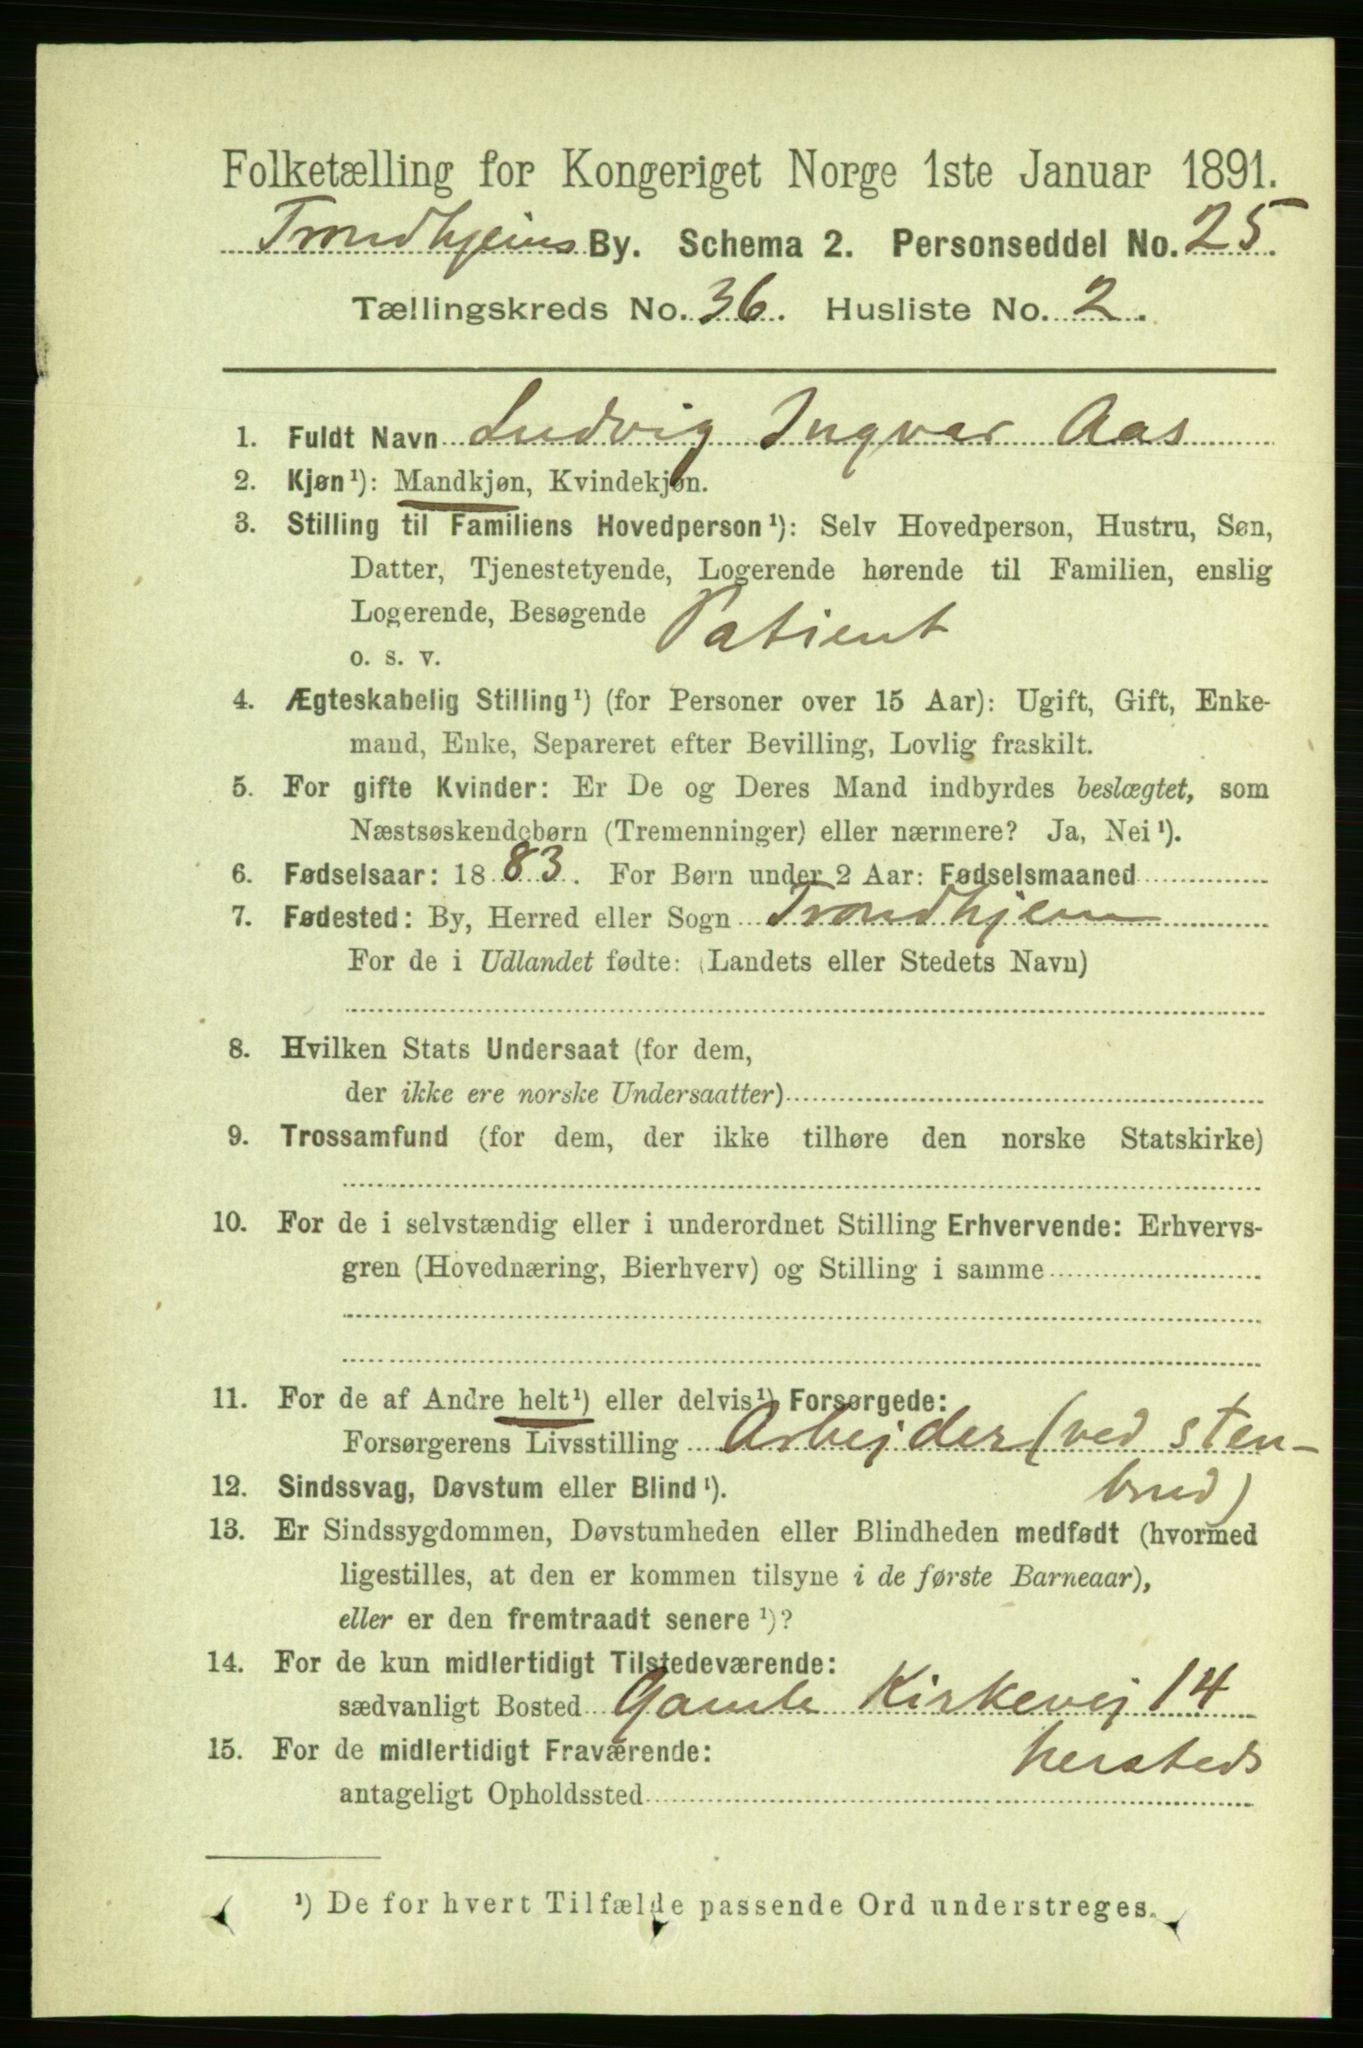 Folketælling for Kongeriget Norge 1ste Januar 1891.
Trondhjems By. Schema 2. Personseddel No. 25.
Tællingskreds No. 36. Husliste No. 2.
1. Fuldt Navn Ludvig Ingvar Aas
2. Kjøn¹): Mandkjøn, Kvindekjøn.
3. Stilling til Familiens Hovedperson¹): Selv Hovedperson, Hustru, Søn,
Datter, Tjenestetyende, Logerende hørende til Familien, enslig
Logerende, Besøgende Patient
o. s. v.
4. Ægteskabelig Stilling¹) (for Personer over 15 Aar): Ugift, Gift, Enke-
mand, Enke, Separeret efter Bevilling, Lovlig fraskilt.
5. For gifte Kvinder: Er De og Deres Mand indbyrdes beslægtet, som
Næstsøskendebørn (Tremenninger) eller nærmere? Ja, Nei¹).
6. Fødselsaar: 1883. For Børn under 2 Aar: Fødselsmaaned
7. Fødested: By, Herred eller Sogn Trondhjem
For de i Udlandet fødte: (Landets eller Stedets Navn)
8. Hvilken Stats Undersaat (for dem,
der ikke ere norske Undersaatter)
9. Trossamfund (for dem, der ikke tilhøre den norske Statskirke)
10. For de i selvstændig eller i underordnet Stilling Erhvervende: Erhvervs-
gren (Hovednæring, Bierhverv) og Stilling i samme
11. For de af Andre helt¹) eller delvis¹) Forsørgede:
Forsørgerens Livsstilling Arbejder (ved sten-
12. Sindssvag, Døvstum eller Blind¹). brud)
13. Er Sindssygdommen, Døvstumheden eller Blindheden medfødt (hvormed
ligestilles, at den er kommen tilsyne i de første Barneaar),
eller er den fremtraadt senere¹)?
14. For de kun midlertidigt Tilstedeværende:
sædvanligt Bosted Gamle Kirkevej 14
15. For de midlertidigt Fraværende: hersteds
antageligt Opholdssted
¹) De for hvert Tilfælde passende Ord understreges.